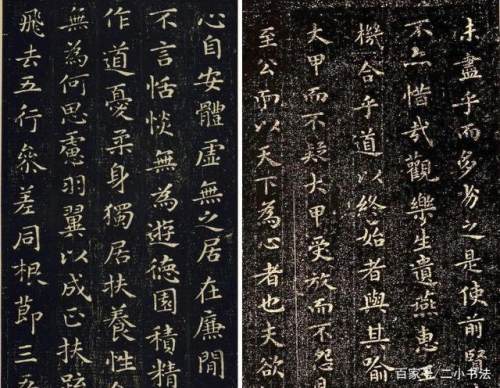 未盡乎而多劣之是使前賢
不亦惜哉觀樂生遺燕惠
機合乎道以終始者與其喻
大甲而不疑大甲受放而不怨是
至公而以天下為心者也夫欲
心自安體虛無之居在廉間
不言恬惔無為遊德園積精
作道憂柔身獨居扶養性
無為何思慮羽翼以成正扶疏
飛去五行參差同根節三
百家号/二小书法